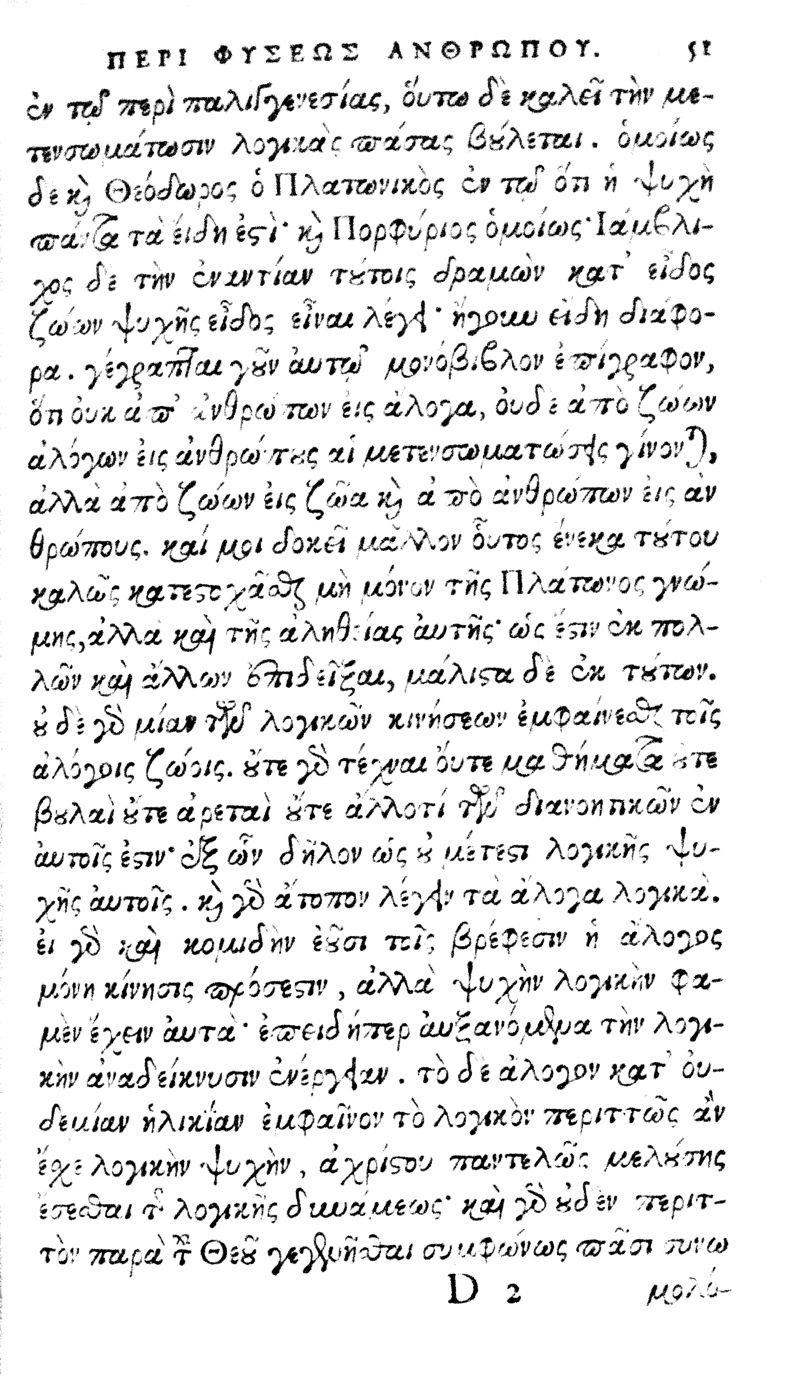 ΠΕΡΙ ΦΥΣΕΩΣ ΑΝΘΡΩΠΟΥ. 51
ἐν τῷ περὶ παλιγγενεσίας, ὅυτω δὲ καλεῖ τὴν με-
τενσωμάτωσιν λογικὰς πάσας βούλεται. ὁμοίως
δὲ καὶ Θεόδωρος ὁ Πλατωνικὸς ἐν τῷ ὅτι ἡ ψυχὴ
πάντα τὰ ἐίδη ἐστὶ· καὶ Πορφύριος ὁμοίως· Ιάμβλι-
χος δὲ τὴν ἐναντίαν τούτοις δραμὼν κατ' εἶδος
ζώων ψυχῆς εἶδος εἶναι λέγει· ἤγουν ἐίδη διάφο-
ρα. γέγραπται γοῦν ἀυτῷ μονόβιβλον ἐπίγραφον,
ὅτι ὀυκ ἀπ' ἀνθρώπων ἐις ἄλογα, ὀυδὲ ἀπὸ ζώων
ἀλόγων ἐις ἀνθρώπους αἱ μετενσωματώσεις γίνονται,
ἀλλὰ ἀπὸ ζώων ἐις ζῶα καὶ ἀπὸ ἀνθρώπων ἐις ἀν
θρώπους. καί μοι δοκεῖ μᾶλλον ὅυτος ἕνεκα τούτου
καλῶς κατεστοχᾶσθαι μὴ μόνον τῆς Πλάτωνος γνώ-
μης, ἀλλὰ καὶ τῆς ἀληθείας ἀυτῆς· ὡς ἔστιν ἐκ πολ-
λῶν καὶ ἄλλων ἐπιδεῖξαι, μάλιστα δὲ ἐκ τούτων.
οὐδὲ γὰρ μίαν τῶν λογικῶν κινήσεων ἐμφαίνεσθαι τοῖς
ἀλόγοις ζώοις. οὔτε γὰρ τέχναι ὄυτε μαθήματα οὔτε
βουλαὶ οὔτε ἀρεταὶ οὔτε ἄλλοτί τῶν διανοητικῶν ἐν
ἀυτοῖς ἐστιν· ἐξ ὧν δῆλον ὡς οὐ μέτεστι λογικῆς ψυ-
χῆς ἀυτοῖς. καὶ γὰρ ἄτοπον λέγειν τὰ ἄλογα λογικὰ.
ἐι γὰρ καὶ κομιδὴν ἐοῦσι τοῖς βρέφεσιν ἡ ἄλογος
μόνη κίνησις πρόσεστιν, ἀλλὰ ψυχὴν λογικὴν φα-
μὲν ἔχειν ἀυτὰ· ἐπειδήπερ ἀυξανόμενα τὴν λογι-
κὴν ἀναδείκνυσιν ἐνέργειαν. τὸ δὲ ἄλογον κατ' ὀυ-
δεμίαν ἡλικίαν ἐμφαῖνον τὸ λογικὸν περιττῶς ἂν
ἔχε λογικὴν ψυχὴν, ἀχρίστου παντελῶς μελούσης
ἔσεσθαι τῆς λογικῆς δυνάμεως· καὶ γὰρ οὐδὲν περιτ-
τὸν παρὰ τοῦ Θεοῦ γεγενῆσθαι συμφώνως πᾶσι συνω
D 2 μολό-